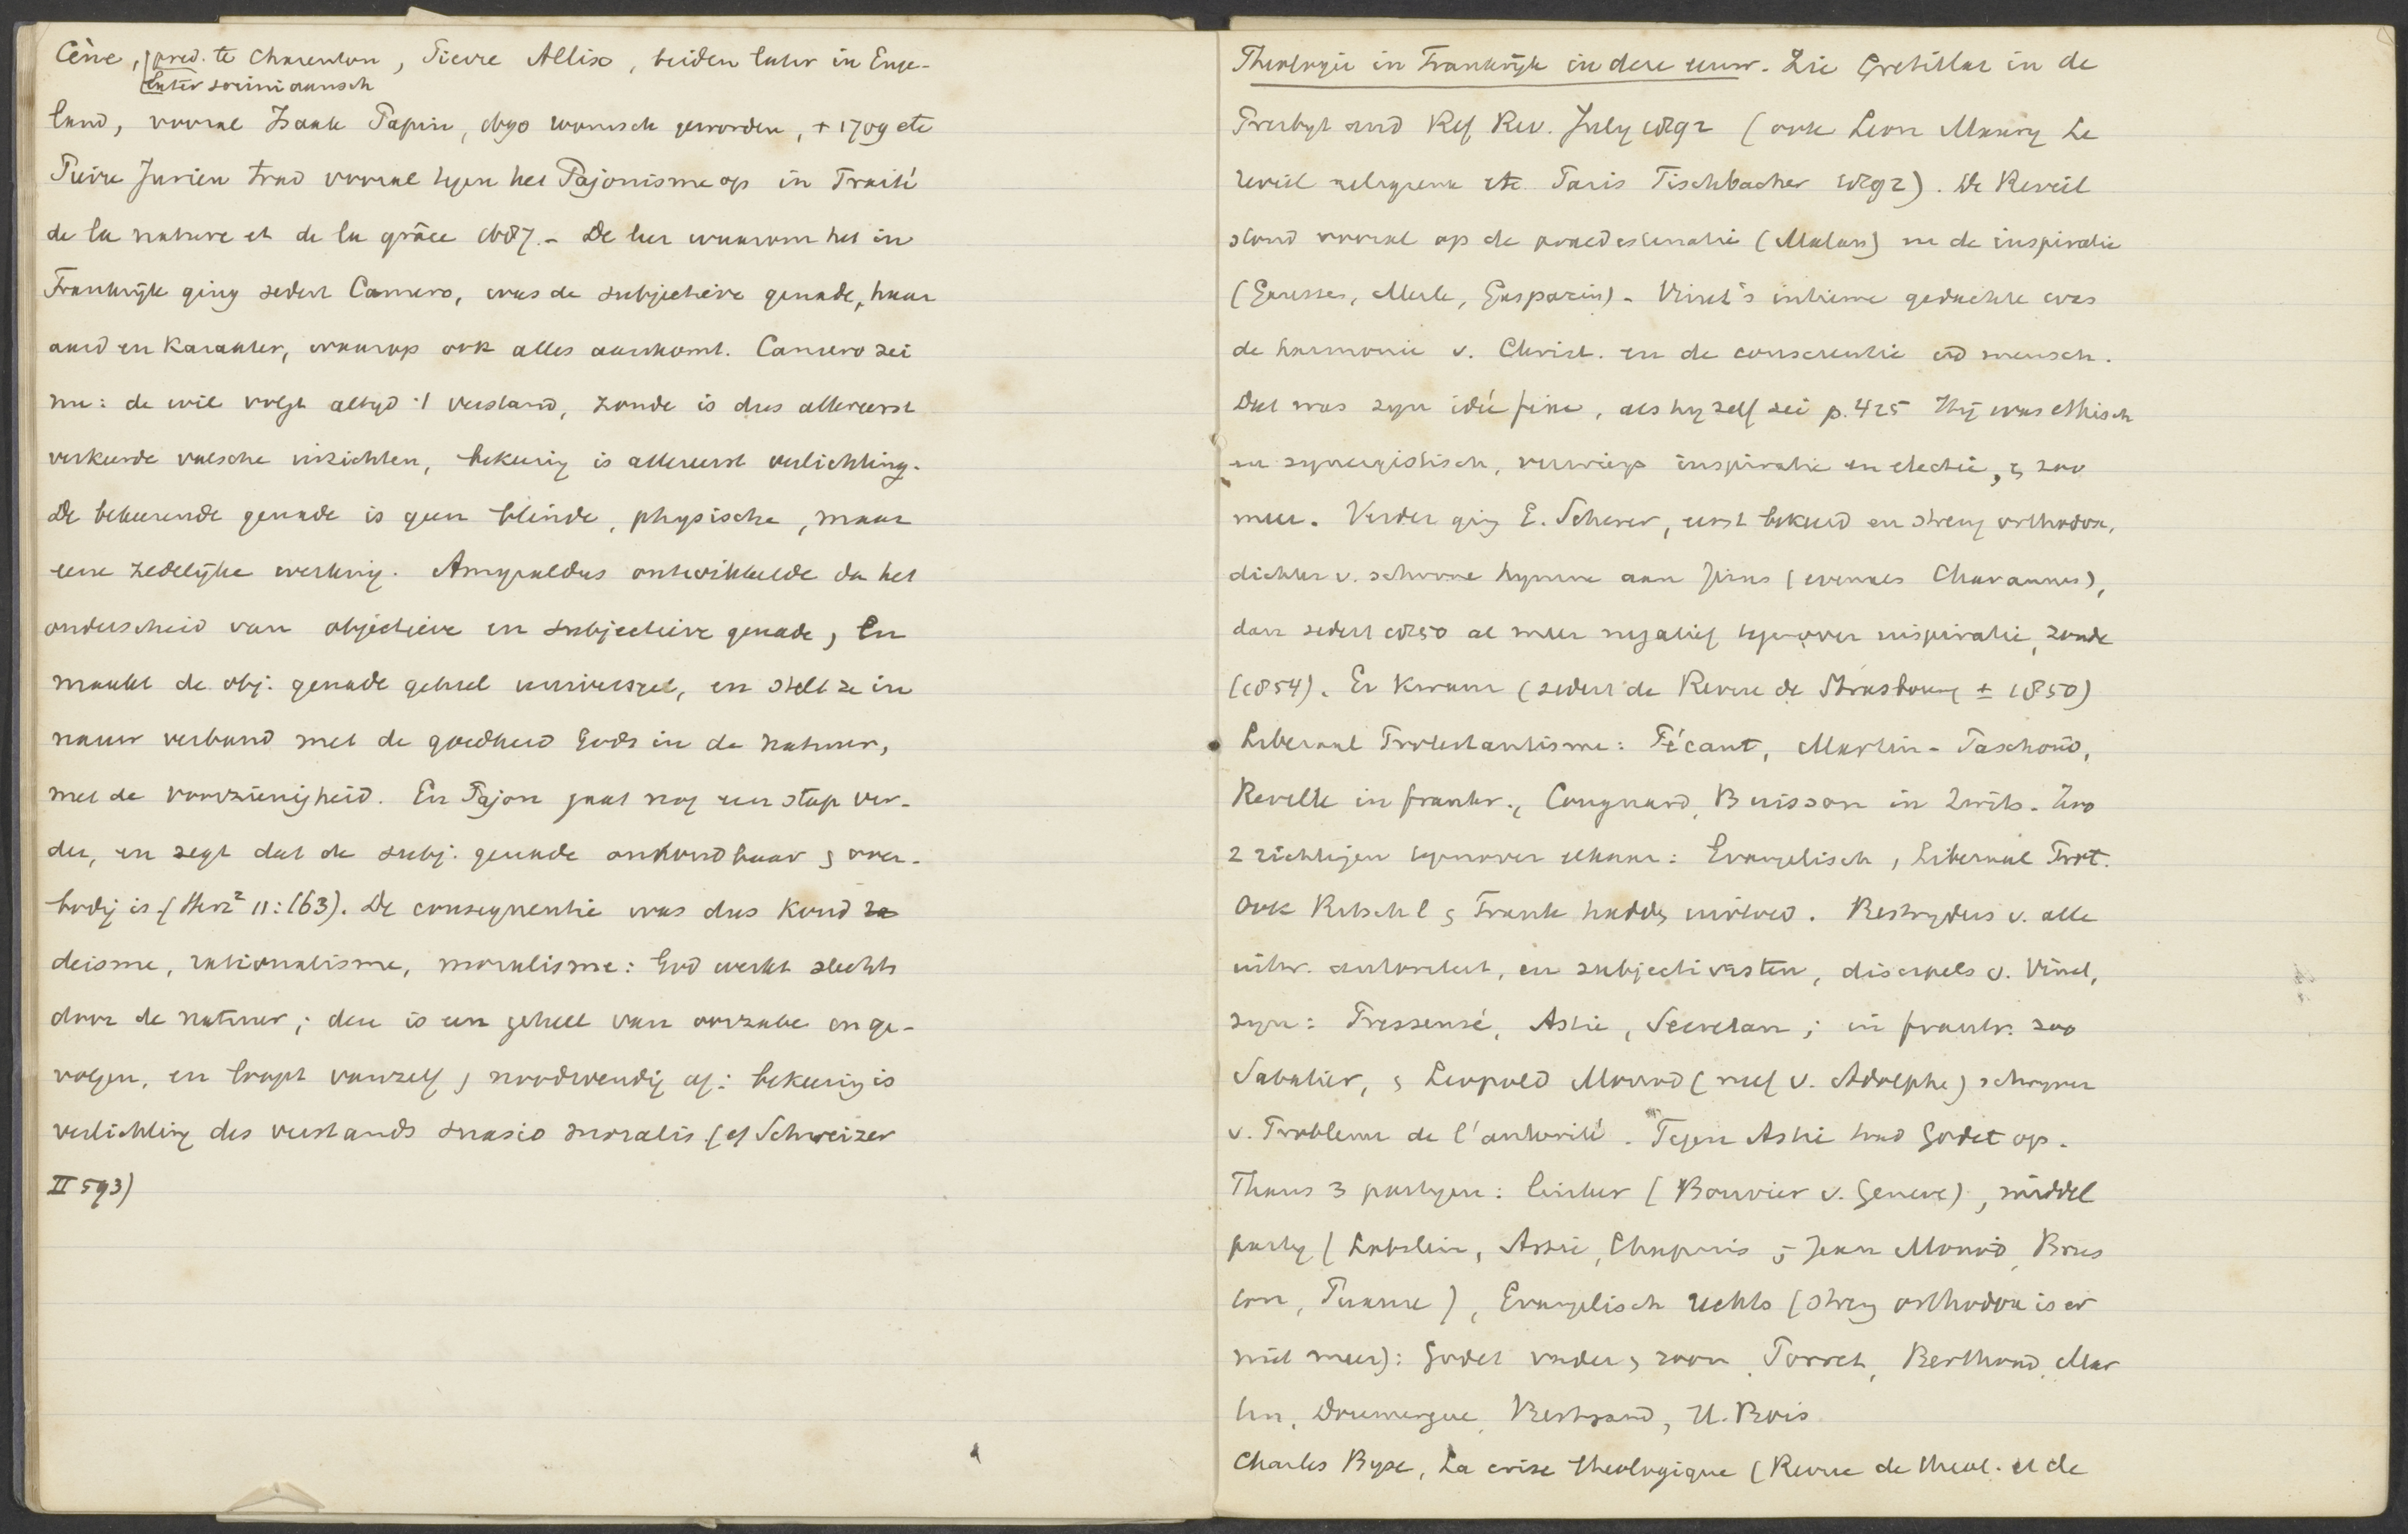 Cène, pred. te Charenton, Pierre Allix, beiden later in Enge-
later sociniaansch
land, vooral Isaak Papin, 1690 roomsch geworden, + 1709 etc
Pierre Jurieu trad vooral tegen het Pajonisme op in Traité
de la nature et de la grâce 1687. - De leer waarom het in
Frankrijk ging sedert Camero, was de subjectieve genade, haar
aard en karakter, waarop ook alles aankomt. Camero zei
nu: de wil volgt altyd 't verstand, zonde is dus allereerst
verkeerde valsche inzichten, bekering is allereerst verlichting.
De bekeerende genade is geen blinde, physische, maar
eene zedelijke werking. Amyraldus ontwikkelde da het
onderscheid van objectieve en subjectieve genade, en
maakt de obj. genade geheel universeel, en stelt ze in
nauw verband met de goedheid Gods in de natuur,
met de voorzienigheid. En Pajon gaat nog een stap ver-
der, en zegt dat de subj. genade onhoudbaar & over-
bodig is (Herz² 11:163). De consequentie was dus koud
deisme, rationalisme, moralisme: God werkt slechts
door de natuur; deze is een geheel van oorzake en ge-
volgen, en loopt vanzelf & noodwendig af: bekering is
verlichting des verstands suasio moralis (cf Schweizer
II 593)
Theologie in Frankrijk in deze eeuw. Zie Gretillat in de
Presbyt and Ref Rev. July 1892 (ook Leon Maury Le
reveil religieux etc. Paris Fischbacher 1892). De Reveil
stond vooral op de praedestinatie (Malan) en de inspiratie
(Gaussen, Merle, Gasparin). Vinet's intieme gedachte was
de harmonie v. Christ. en de conscientie v/d mensch.
Dat was zyn idée fixe, als hy zelf zei p. 425 Hij was ethisch
en synergistisch, verwierp inspiratie en electie, & zoo
meer. Verder ging E. Scherer, eerst bekeerd en streng orthodox,
dichter v. schoone hymne aan Jezus (evenals Chavannes),
dan sedert 1850 al meer negatief tegenover inspiratie, zonde
(1854). Er kwam (sedert de Revue de Strasbourg ± 1850)
Liberaal Protestantisme: Pécaut, Martin-Paschoud,
Reville in frankr., Cougnard, Buisson in Zwits. Zoo
2 richtingen tegenover elkaar: Evangelisch, Liberaal Prot.
Ook Ritschl & Frank hadden invloed. Bestryders v. alle
uitw. autoriteit, en subjectivisten, discipels v. Vinet,
zyn: Pressensé, Astié, Secretan; in frankr. zoo
Sabatier, & Leopold Monod (neef v. Adolphe) schryver
v. Probleme de l'autorité. Tegen Astié trad Godet op.
Thans 3 partyen: linker (Bouvier v. Geneve), middel
party (Lobstein, Astié, Chapuis & Jean Monod, Brus
ton, ), Evangelisch rechts (streng orthodox is er
niet meer): Godet vader & zoon, Porret, Berthoud, Mar
tin, Doumergue, Bertrand, H. Bois
Charles Byse, La crise theologique (Revue de theol. et de